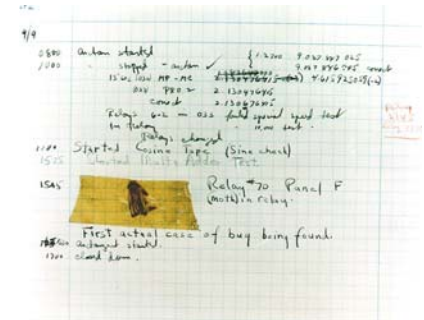 9/9
0800 Antan started { 1.2700 9.037 847 025
1000 " stopped - antan ✓ 9.037 846 995 correct
13"uc (032) MP - MC 4.615925059(-2)
033 PRO 2 2. 130476415
correct 2.130676415
Relays 6-2 in 033 failed special speed test
in Relay " 10.00 test.
Relays changed
1100 Started Cosine Tape (Sine check)
1525 Started Mult+Adder Test.
1545 Relay #70 Panel F
(moth) in relay.
First actual case of bug being found.
antangent started.
1700 closed down.